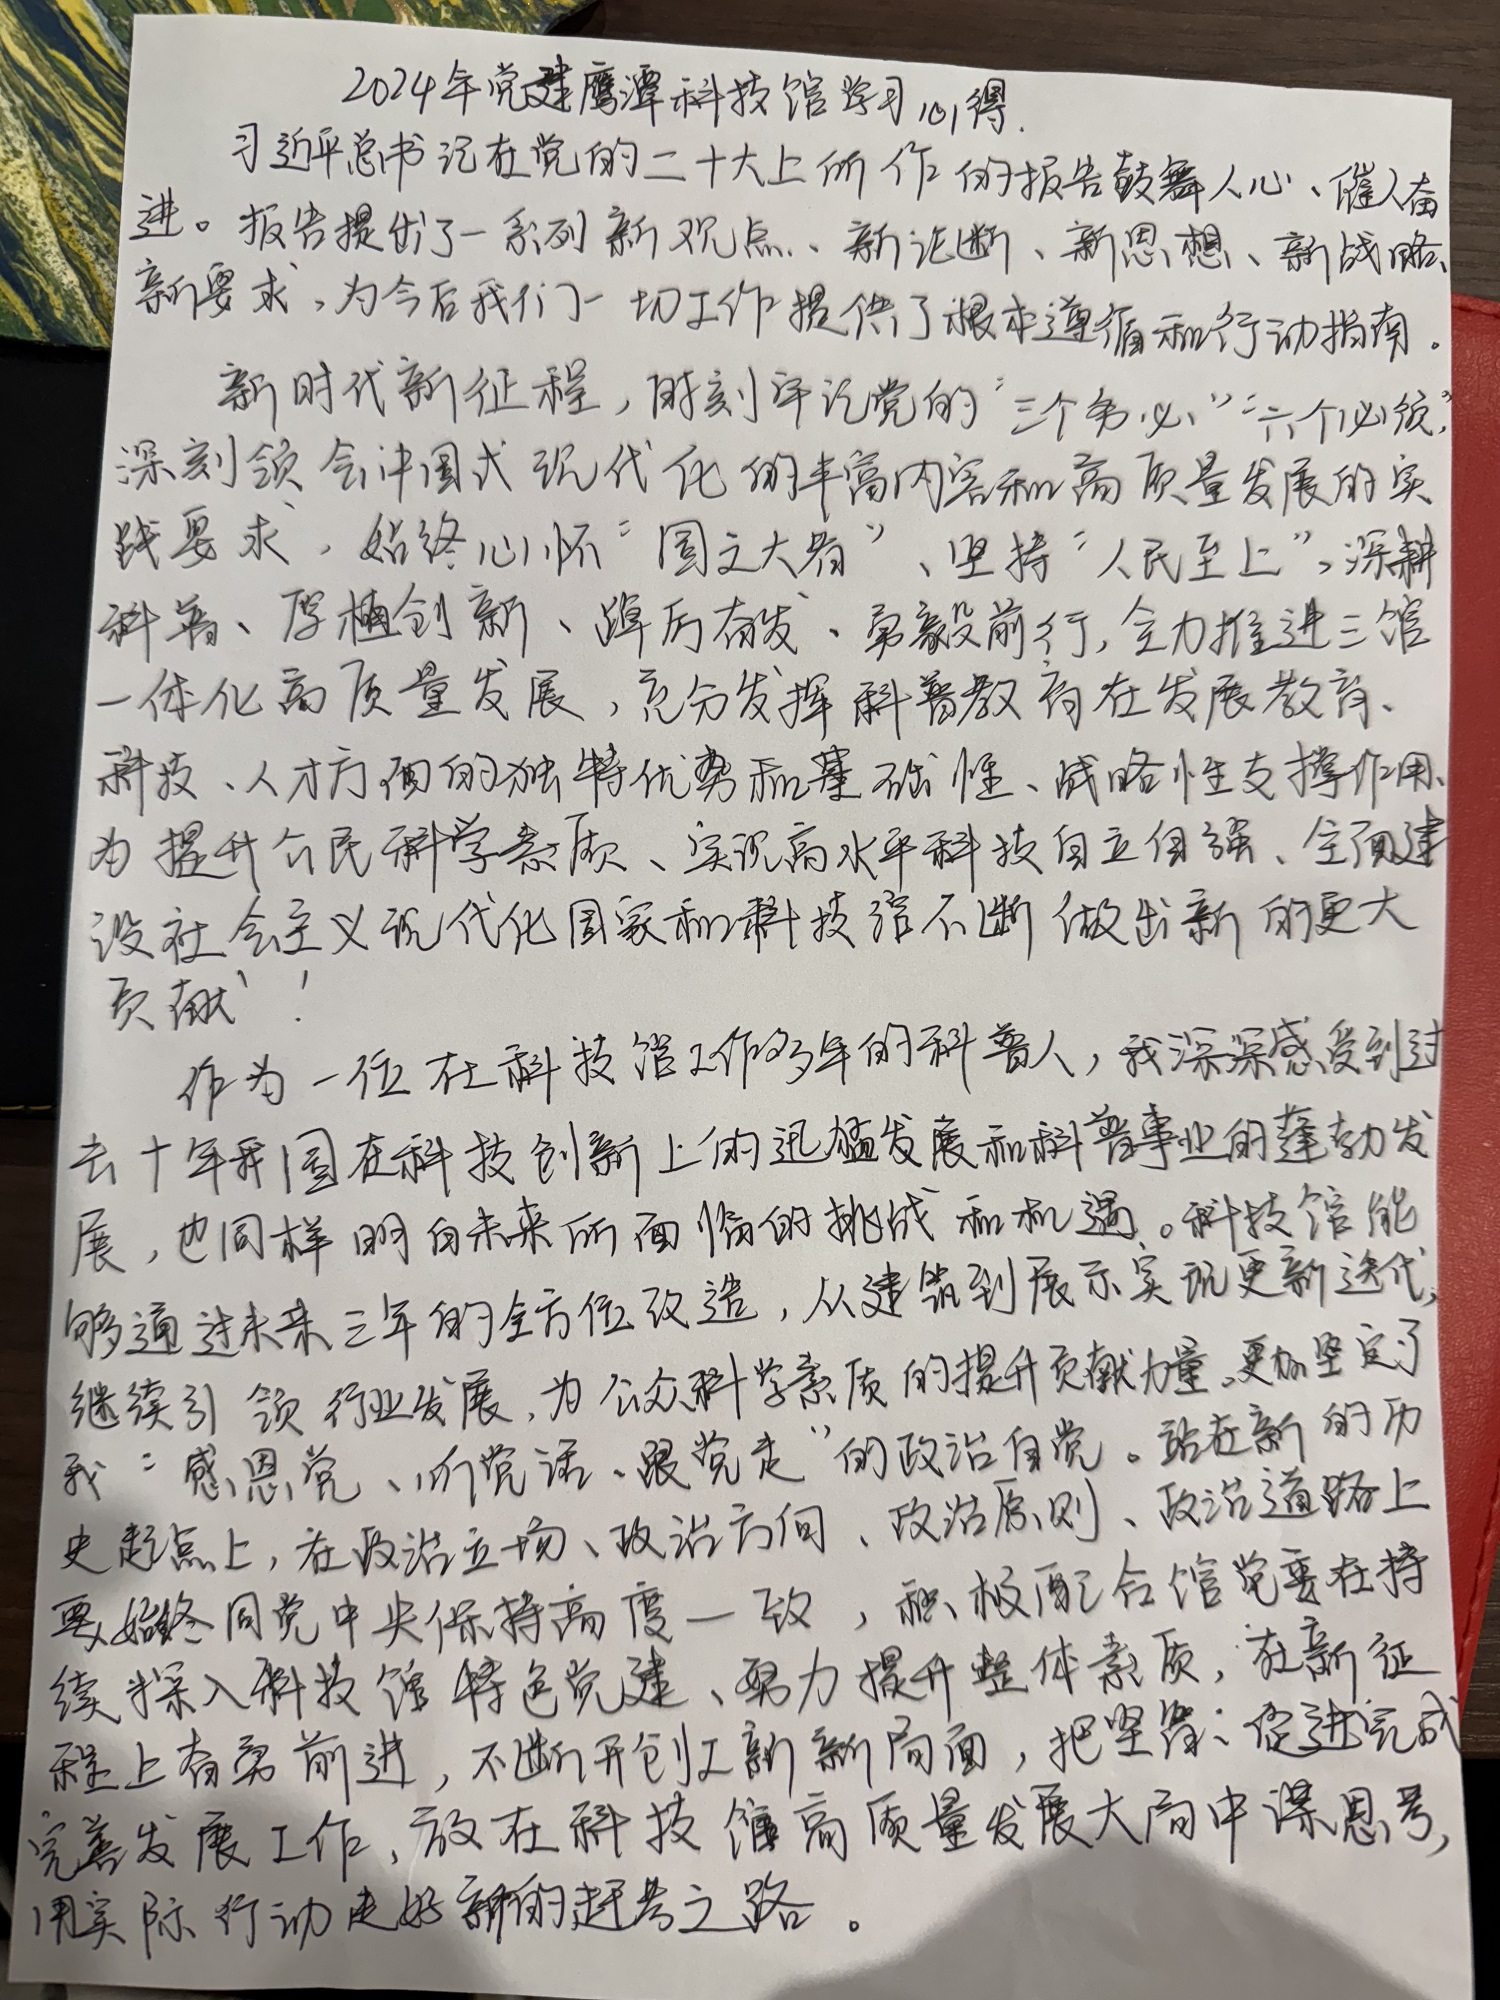 2024年党建鹰潭科技馆学习心得.
习近平总书记在党的二十大上所作的报告鼓舞人心、催人奋
进。报告提出了一系列新观点、新论断、新思想、新战略、
新要求,为今后我们一切工作提供了根本遵循和行动指南.
新时代新征程,时刻牢记党的“三个务必”“六个必须”,
深刻领会中国式现代化的丰富内容和高质量发展的实
践要求,始终心怀“国之大者”、坚持“人民至上”,深耕
科普、厚植创新、踔厉奋发、勇毅前行,全力推进三馆
一体化高质量发展,充分发挥科普教育在发展教育、
科技、人才方面的独特优势和基础性、战略性支撑作用、
为提升公民科学素质、实现高水平科技自立自强、全面建
设社会主义现代化国家和科技馆不断做出新的更大
贡献!
作为一位在科技馆工作多年的科普人,我深深感受到过
去十年我国在科技创新上的迅猛发展和科普事业的蓬勃发
展,也同样明白未来所面临的挑战和机遇。科技馆能
够通过未来三年的全方位改造,从建筑到展示实现更新迭代,
继续引领行业发展,为公众科学素质的提升贡献力量。更加坚定了
我“感恩党、听党话、跟党走”的政治自觉。站在新的历
史起点上,在政治立场、政治方向、政治原则、政治道路上
要始终同党中央保持高度一致,积极配合馆党委在持
续探入科技馆特色党建、努力提升整体素质,在新征
程上奋勇前进,不断开创工新新局面,把坚当:促进完成
完善发展工作,放在科技馆高质量发展大局中谋思考,
用实际行动走好新的赶考之路。